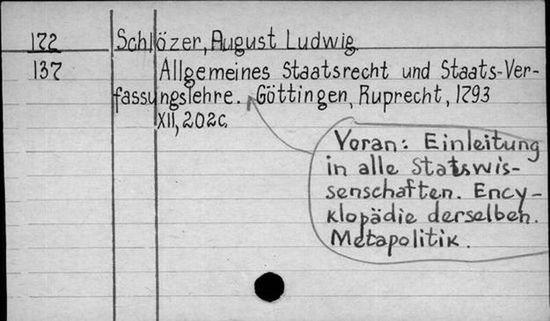 172 Schlözer, August Ludwig.
137 Allgemeines Staatsrecht und Staats-Ver-
fassungslehre. Göttingen, Ruprecht, 1793
XII, 202c.
Voran: Einleitung
in alle Statswis-
senschaften. Ency-
klopädie derselben.
Metapolitik.